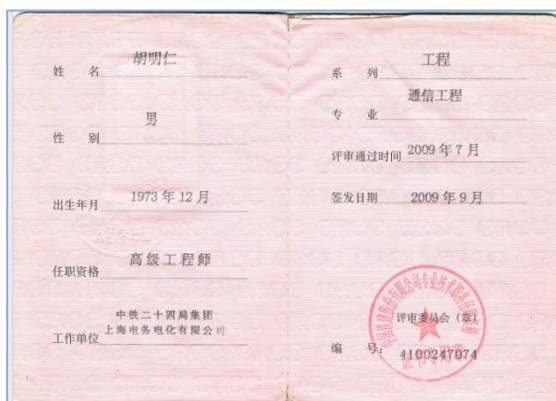 姓 名 胡明仁
性 别 男
出生年月 1973 年 12 月
任职资格 高级工程师
中铁二十四局集团
工作单位 上海电务电化有限公司
系 列 工程
专 业 通信工程
评审通过时间 2009 年 7 月
签发日期 2009 年 9 月
评审委员会（章）
编 号： 4100247074
证书专用章